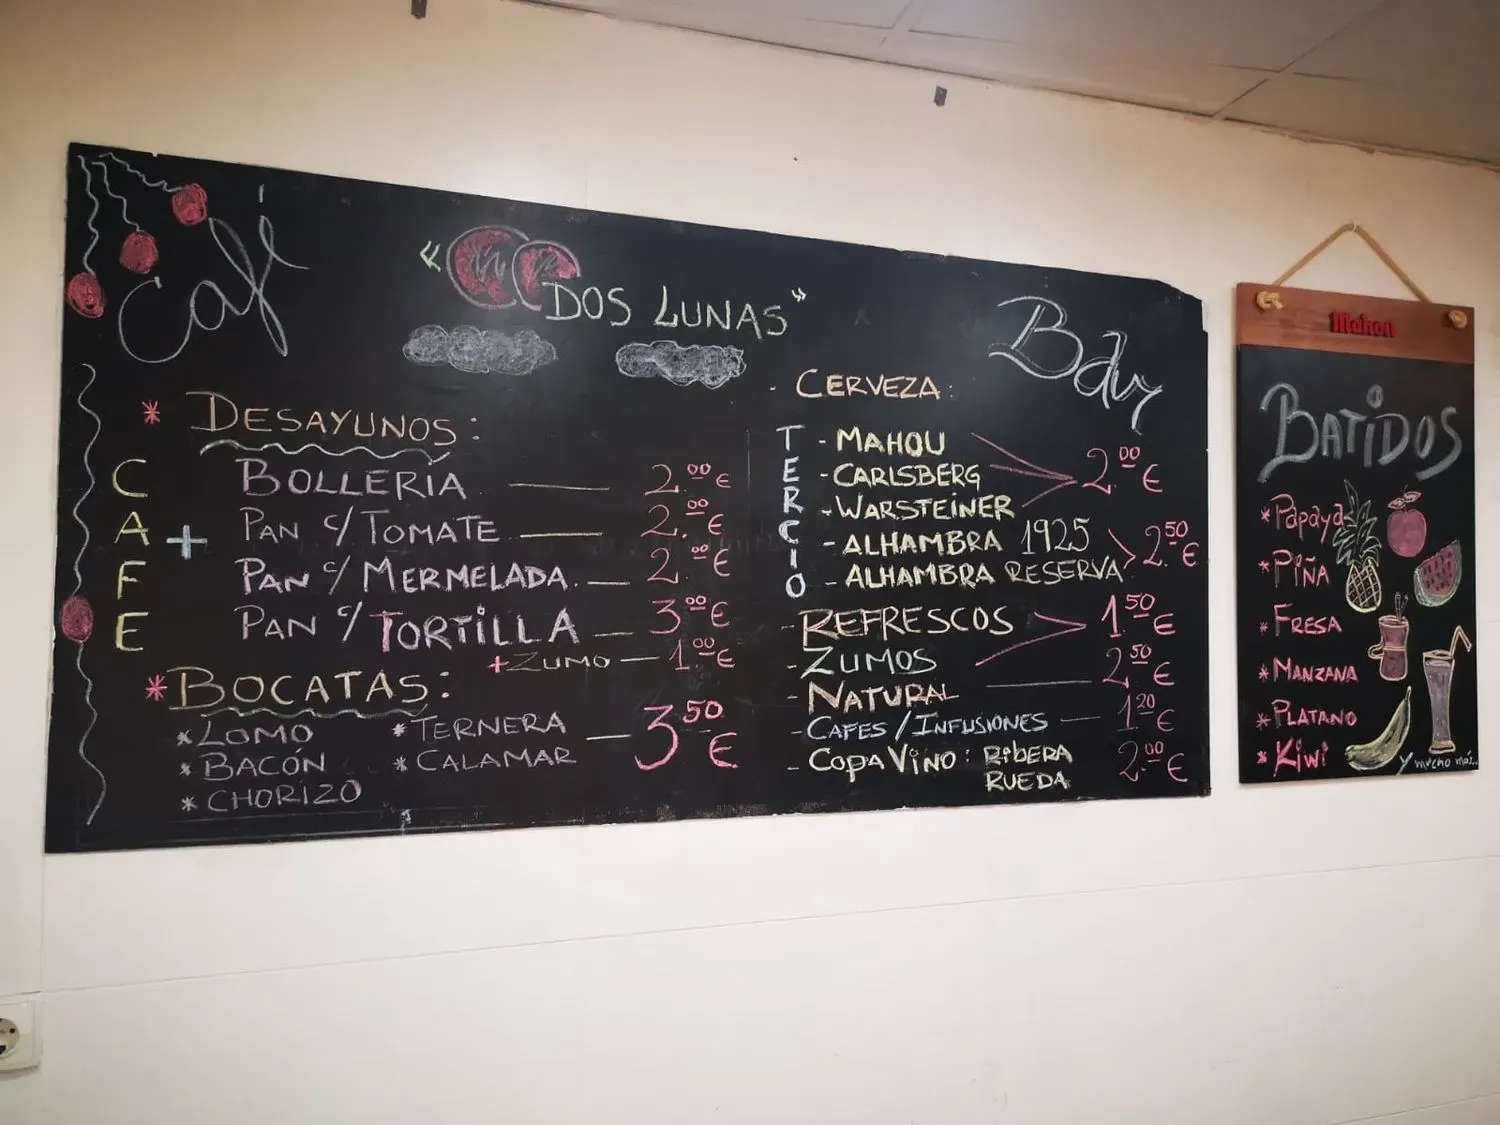 Café
« DOS LUNAS »
Bar
* DESAYUNOS:
CAFE +
BOLLERÍA — 2.00 €
PAN C/ TOMATE — 2.00 €
PAN C/ MERMELADA. — 2.00 €
PAN C/ TORTILLA — 3.00 €
+ ZUMO — 1.00 €
* BOCATAS:
* LOMO
* BACÓN
* CHORIZO
* TERNERA
* CALAMAR
— 3.50 €
- CERVEZA:
TERCIO
- MAHOU
- CARLSBERG
- WARSTEINER
2.00 €
- ALHAMBRA 1925
- ALHAMBRA RESERVA
2.50 €
- REFRESCOS
- ZUMOS
1.50 €
- NATURAL — 2.50 €
- CAFES / INFUSIONES — 1.20 €
- COPA VINO: RIBERA 2.00 €
RUEDA
Mahou
BATIDOS
* Papaya
* PIÑA
* FRESA
* MANZANA
* PLATANO
* Kiwi
Y mucho más..